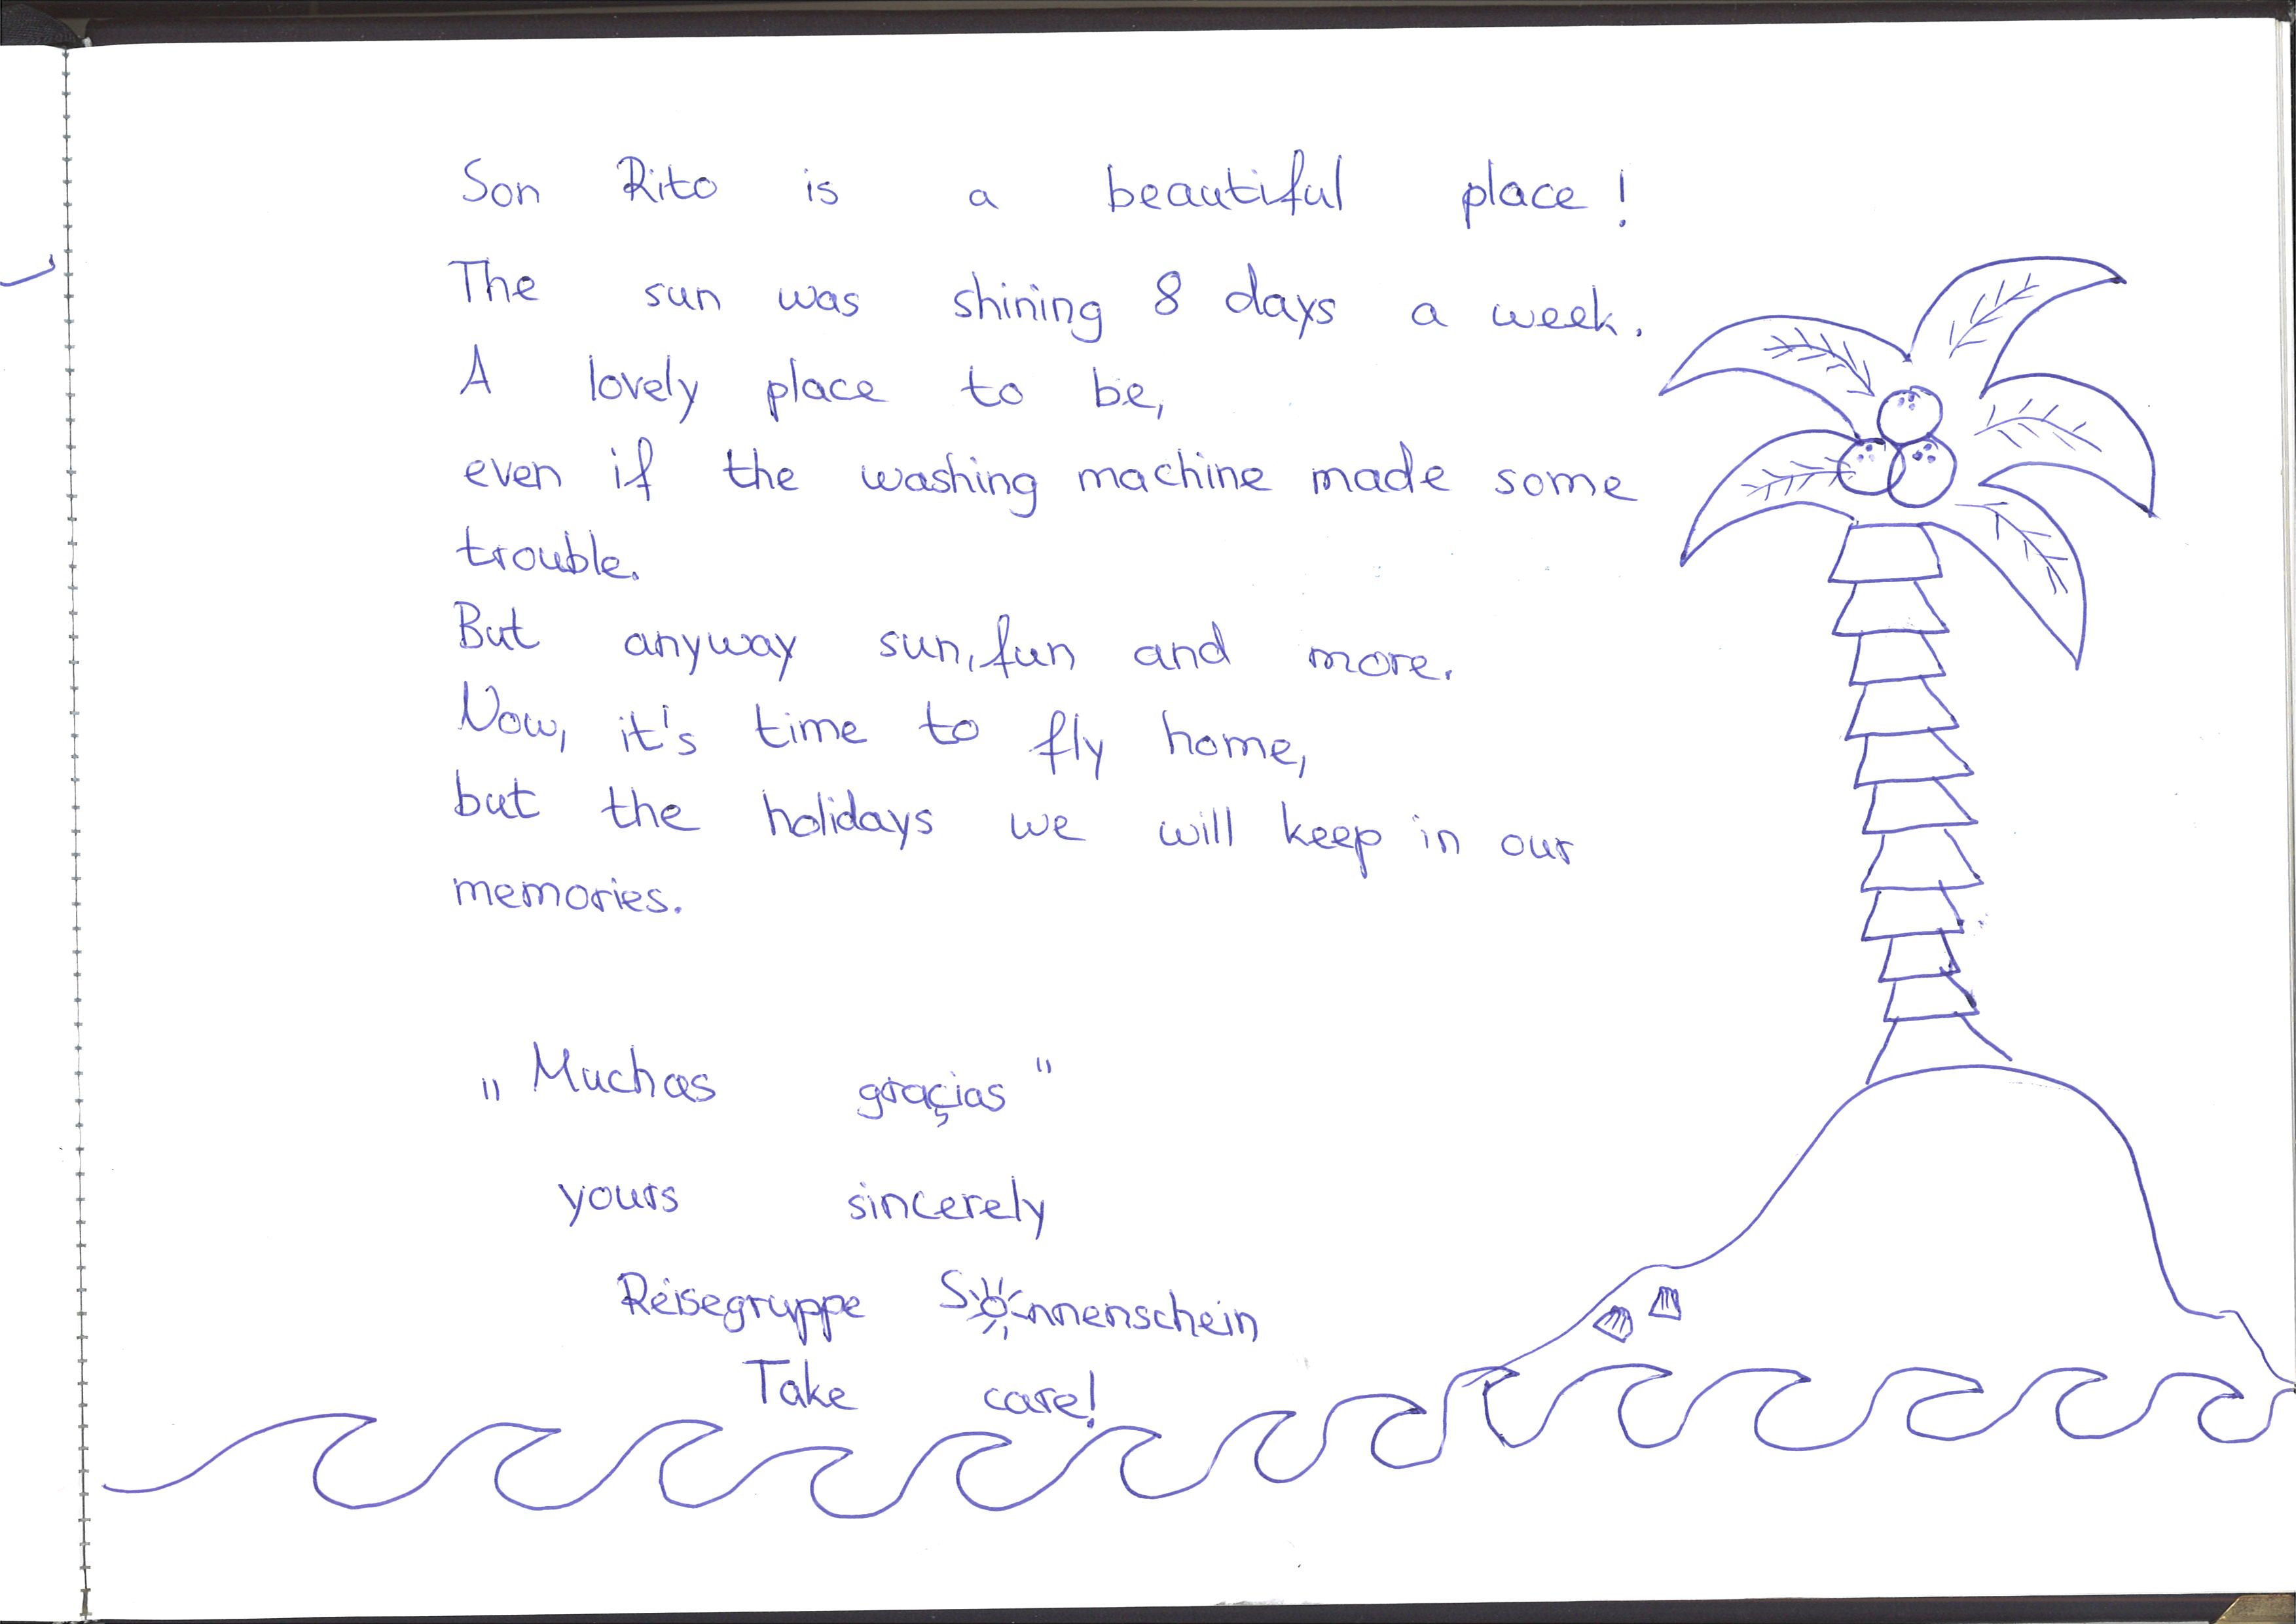 Son Rito is a beautiful place!
The sun was shining 8 days a week.
A lovely place to be,
even if the washing machine made some
trouble.
But anyway sun, fun and more.
Now, it's time to fly home,
but the holidays we will keep in our
memories.
„Muchas graçias"
yours sincerely
Reisegruppe Sonnenschein
Take care!